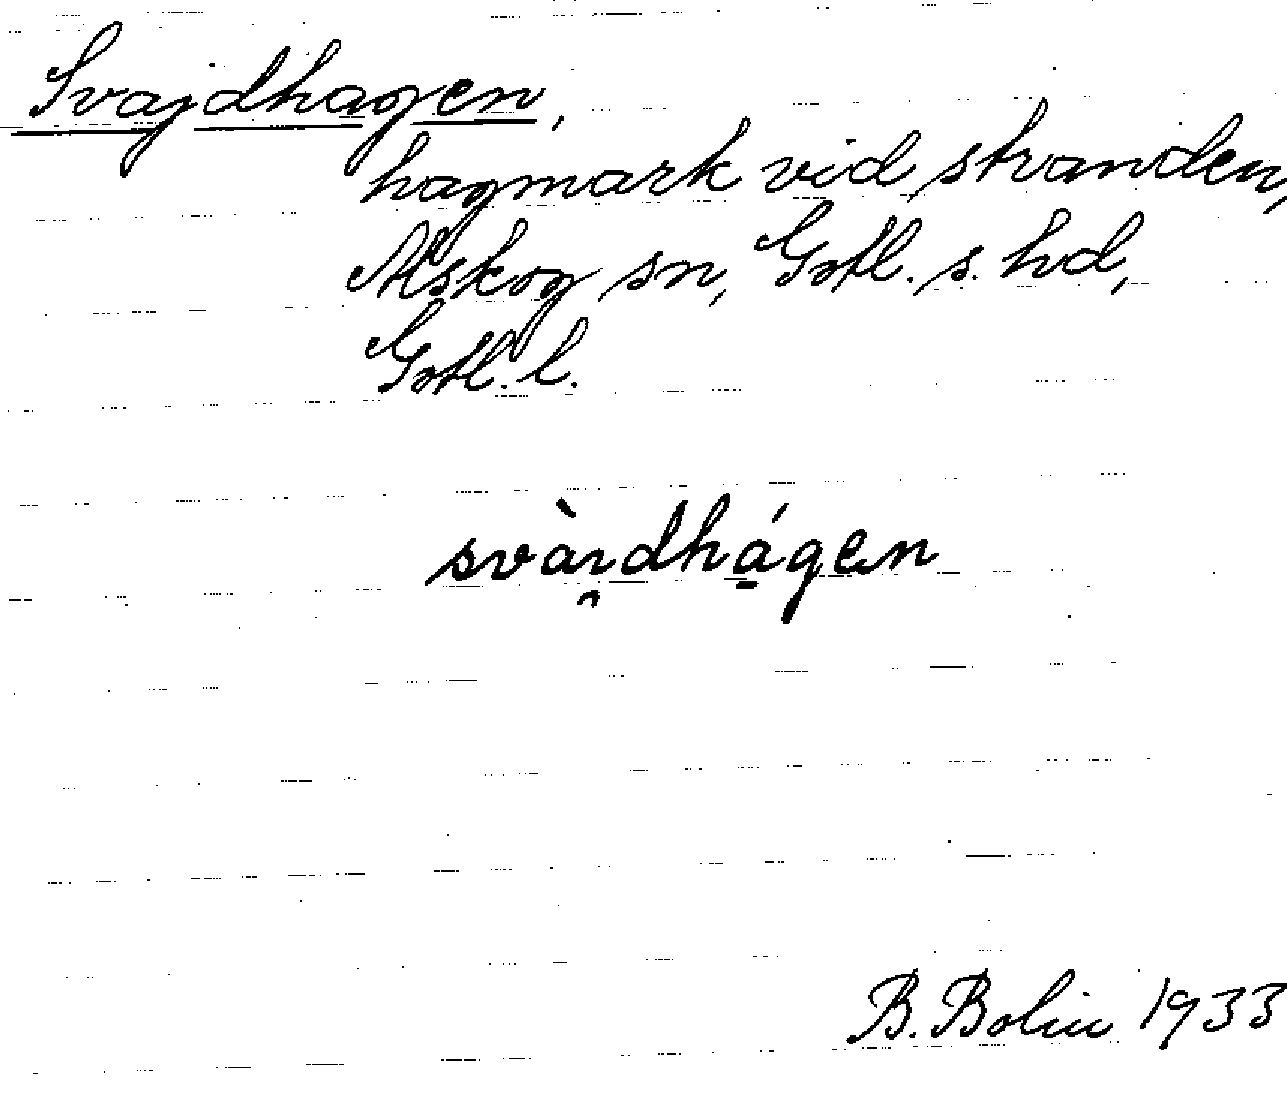 Svajdhagen,
hagmark vid stranden,
Alskog sn, Gotl. s. hd,
Gotl. l.
svàı̯dhá̱gen
B. Bolin 1933